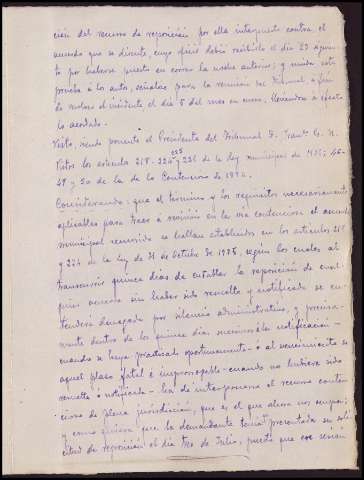 ción del recurso de reposición por ella interpuesto contra el
acuerdo que se discute, cuyo oficio debió recibirlo el día 29
to por haberse puesto en correo la noche anterior; y unida esta
prueba á los autos, señalose para la reunión del Tribunal a fin
de resolver el incidente el día 5 del mes en curso, llevándose á efecto
lo acordado.
Visto, siendo ponente el Presidente del Tribunal D.
Vistos los artículos 218- 224 y 225 de la Ley municipal de 1935; 46-
49 y 50 de la de lo Contencioso de 1894.
Considerando: que el término y los requisitos necesariamente
aplicables para traer á revisión en la vía contenciosa el acuerdo
municipal recurrido se hallan establecidos en los artículos 218
y 224 de la Ley de 31 de Octubre de 1935, según los cuales al
transcurrir quince días de entablar la reposición de cual-
quier acuerdo sin haber sido resuelto y notificado se en-
tenderá denegada por silencio administrativo, y precisa-
mente dentro de los quince días sucesivos á la notificación -
cuando se haya practicado oportunamente - ó al vencimiento de
aquel plazo fatal é improrrogable - cuando no hubiera sido
resuelta ó notificada - ha de interponerse el recurso conten-
cioso de plena jurisdicción, que es el que ahora nos ocupa;
y como quiera que la demandante tenía presentada su soli-
citud de reposición el día tres de Julio, puesto que ese